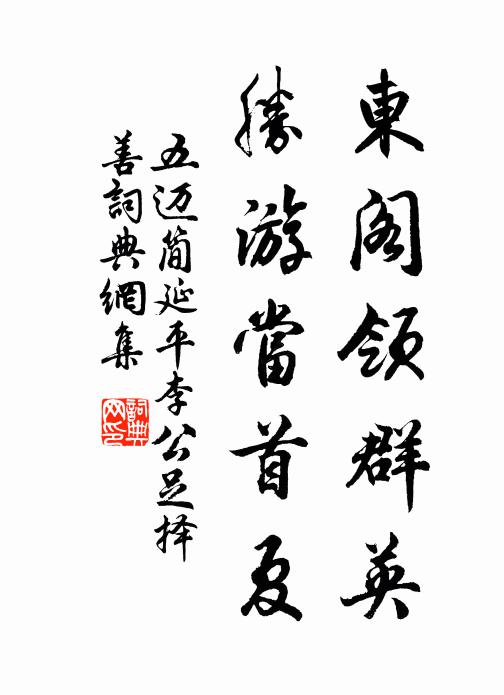 東阁领群英
勝游當首夏
五迈简延平李公足择
善詞典網集
詞典
网印